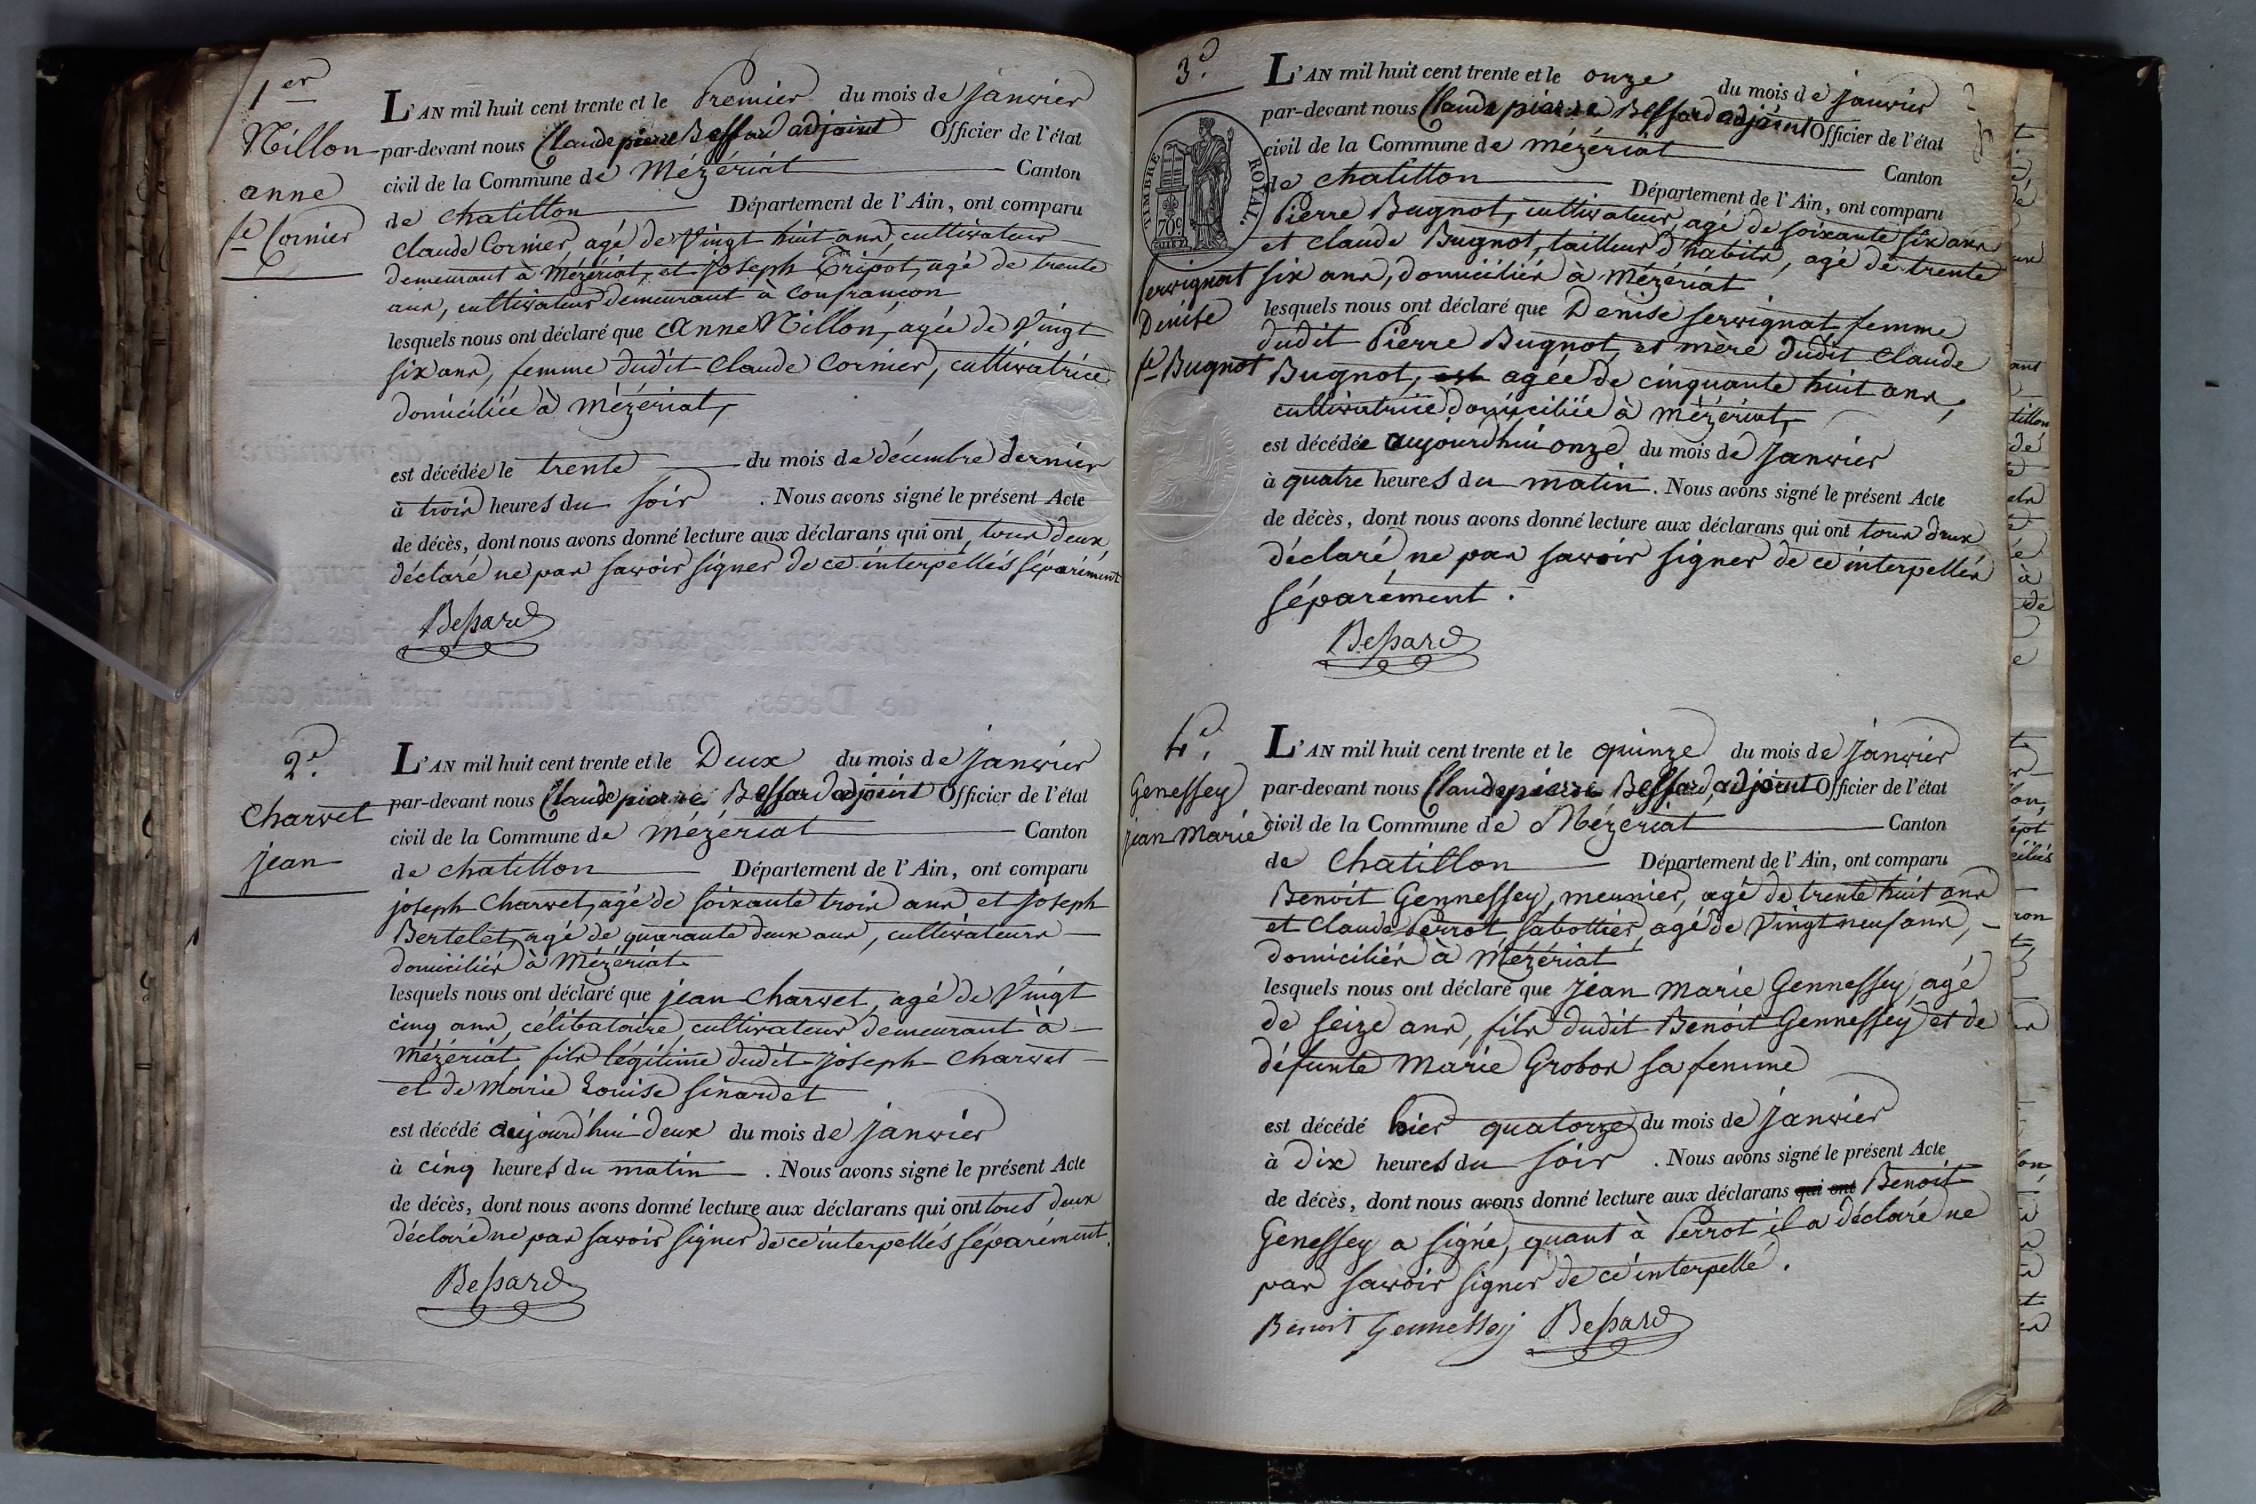 1er
Nillon
anne
fe Cornier
L'AN mil huit cent trente et le Premier du mois de janvier
par-devant nous Claude pierre Bessard adjoint Officier de l'état
civil de la Commune de Mézériat Canton
de chatillon Département de l'Ain, ont comparu
Claude Cornier, agé de Vingt huit ans, cultivateur
demeurant à Mézériat, et joseph Tripot, agé de trente
ans, cultivateur demeurant à Confrançon
lesquels nous ont déclaré que Anne Nillon, agée de Vingt
six ans, femme dudit Claude Cornier, cultivatrice
domiciliée à Mézériat,
est décédée le trente du mois de décembre dernier
à trois heures du soir . Nous avons signé le présent Acte
de décès, dont nous avons donné lecture aux déclarans qui ont, tous deux
déclaré ne pas savoir signer de ce interpellés séparément
Bessard
2e.
Charvet
jean
L'AN mil huit cent trente et le Deux du mois de janvier
par-devant nous Claude pierre Bessard adjoint Officier de l'état
civil de la Commune de Mézériat Canton
de chatillon Département de l'Ain, ont comparu
joseph Charvet, agé de soixante trois ans et joseph
Bertelet, agé de quarante deux ans, cultivateurs
domiciliés à Mézériat
lesquels nous ont déclaré que jean Charvet, agé de Vingt
cinq ans, célibataire, cultivateur demeurant à
Mézériat fils légitime dudit joseph Charvet
et de Marie Louise Sinardet
est décédé aujourd'hui deux du mois de janvier
à cinq heures du matin . Nous avons signé le présent Acte
de décès, dont nous avons donné lecture aux déclarans qui ont tous deux
déclaré ne pas savoir signer de ce interpellés séparément.
Bessard
3e.
TIMBRE ROYAL.
70c
Servignat
Denise
fe Bugnot
L'AN mil huit cent trente et le onze du mois de janvier
par-devant nous Claude pierre Bessard adjoint Officier de l'état
civil de la Commune de Mézériat Canton
de chatillon Département de l'Ain, ont comparu
Pierre Bugnot, cultivateur, agé de soixante six ans
et Claude Bugnot, tailleur d'habits, agé de trente
six ans, domiciliés à Mézériat
lesquels nous ont déclaré que Denise Servignat femme
dudit Pierre Bugnot, et mère dudit Claude
Bugnot, est agée de cinquante huit ans,
cultivatrice domiciliée à Mézériat,
est décédée aujourdhui onze du mois de janvier
à quatre heures du matin. Nous avons signé le présent Acte
de décès, dont nous avons donné lecture aux déclarans qui ont tous deux
déclaré ne pas savoir signer de ce interpellés
séparément.
Bessard
4e.
Genessey
jean Marie
L'AN mil huit cent trente et le quinze du mois de janvier
par-devant nous Claude pierre Bessard, adjoint Officier de l'état
civil de la Commune de Mézériat Canton
de Chatillon Département de l'Ain, ont comparu
Benoit Gennessey, meunier, agé de trente huit ans
et Claude Perrot sabottier, agé de Vingt neuf ans,
domiciliés à Mézériat
lesquels nous ont déclaré que jean Marie Gennessey, agé
de seize ans, fils dudit Benoit Gennessey et de
défunte Marie Grobos sa femme
est décédé hier quatorze du mois de janvier
à Dix heures du soir . Nous avons signé le présent Acte
de décès, dont nous avons donné lecture aux déclarans qui ont Benoit
Genessey a signé, quant à Perrot il a déclaré ne
pas savoir signer de ce interpellé.
Benoit Gennessey Bessard